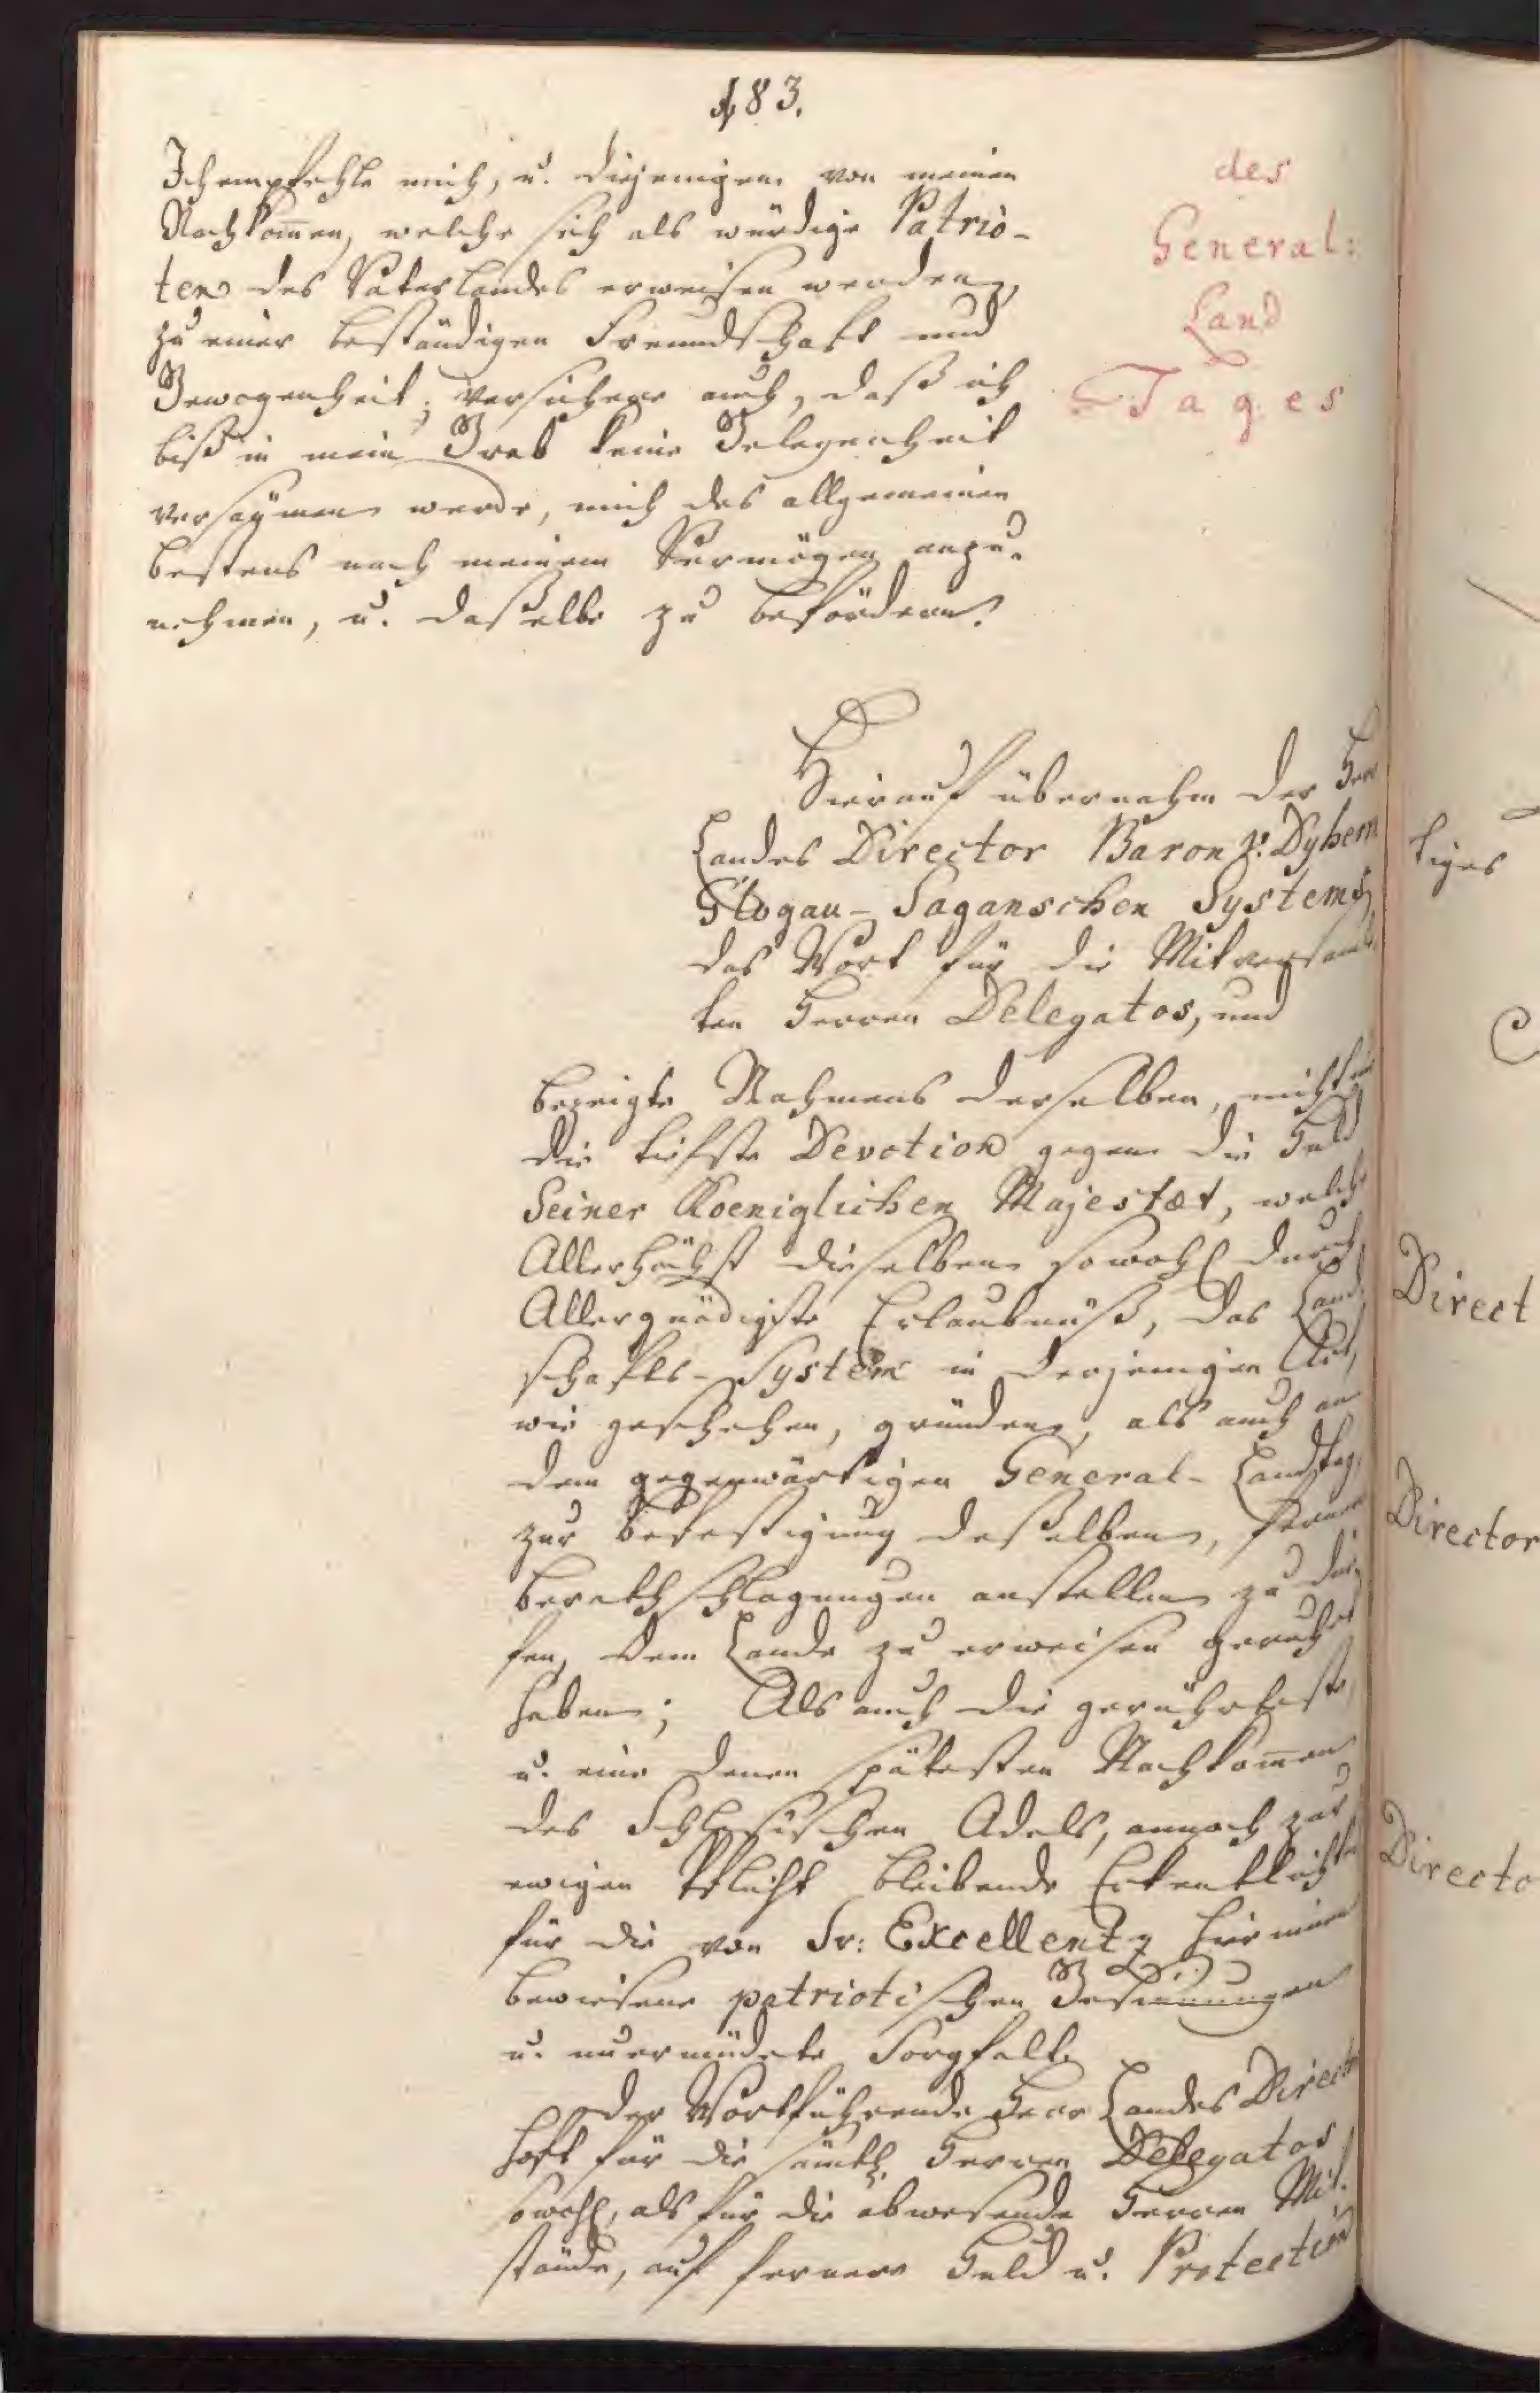 183.
Ich empfehle mich, u. diejenigen von meinen
Nachkom̄en, welche sich als würdige Patrio-
ten des Vaterlandes erweisen werden,
zu einer beständigen Freundschafft und
Gewogenheit; versichere auch, daß ich
biß in mein Grab keine Gelegenheit
versäumen werde, mich des allgemeinen
bestens nach meinem Vermögen anzu-
nehmen, u. dasselbe zu befördern.
des
General:
Land
Tages
Hierauf übernahm der Herr
Landes Director Baron v. Dyhern
Glogau-Saganschen Systems,
das Wort für die Mitversam̄l
ten Herren Delegatos, und
bezeigte Nahmens derselben, nicht nur
die tiefste Devotion gegen die Huld
Seiner Koeniglichen Majestæt, welche
Allerhöchst dieselben sowohl durch
Allergnädigste Erlaubnüß, das Land-
schaftls-System in derjenigen Art,
wie geschehen, gründen, als auch an
dem gegenwärtigen General-Landtag,
zur Befestigung desselben, ferner
berathschlagungen anstellen zu dür-
fen, dem Lande zu erweisen geruhet
haben; Als auch die gerührteste,
u. eine denen spätesten Nachkom̄en
des Schlesischen Adels, annoch zur
ewigen Pflicht bleibende
für die von Sr: Excellentz hierinnen
bewiesene patriotischen Gesinnungen
u. unermüdete Sorgfalt.
Der Wortführende Herr Landes Director
hoft für die sämtl. Herren Delegatos
sowohl, als für die abwesende Herren Mit-
stände, auf fernere Huld u. Protection
tiges
Direct
Director
Directo